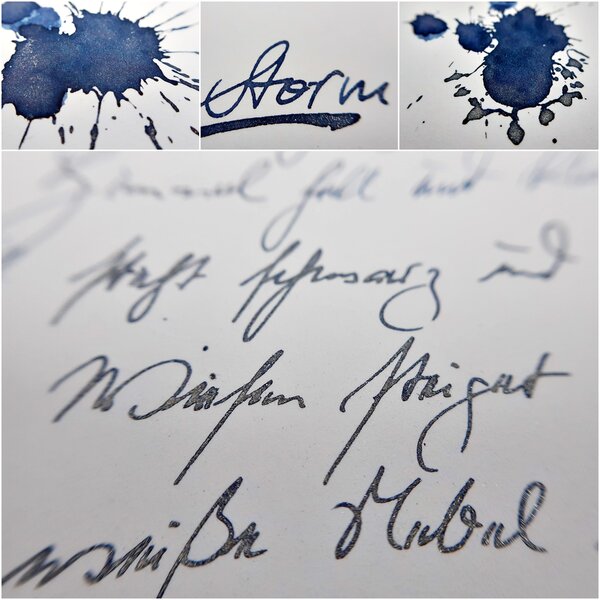 Storm
Himmel hell und
steht schwarz und
Wiesen steiget
weiße Nebel